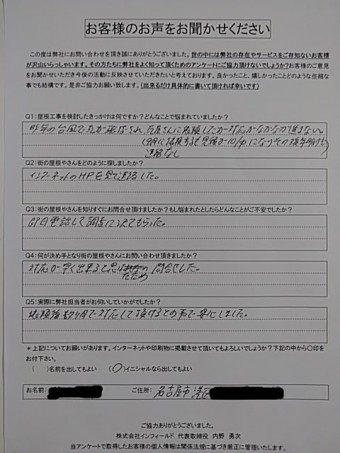 お客様のお声をお聞かせください
この度は弊社にお問い合わせを頂き誠にありがとうございました。世の中には弊社の存在やサービスをご存知ないお客様
が沢山いらっしゃいます。その方たちに弊社をよく知って頂くためのアンケートにご協力頂けないでしょうか?お客様のご意見
をお聞かせいただき今後の活動に反映させていただきたいと考えております。良かったこと、嬉しかったことどのような些細な
事でも結構です。是非ご協力お願い致します。(出来るだけ具体的に書いて頂ければ幸いです)
Q1:屋根工事を検討したきっかけは何ですか?どんなことで悩まれていましたか?
昨年の台風で瓦が飛ばされ、瓦屋さんに依頼したが対応がなかなか進まない。
連絡なし
Q2:街の屋根やさんをどのように探しましたか?
インターネットのHPを見て連絡した。
Q3:街の屋根やさんを知りすぐにお問合せ頂けましたか?もし悩まれたとしたらどんなことがご不安でしたか?
即日電話して調査に来てもらった。
Q4:何が決め手となり街の屋根やさんにお問い合わせ頂きましたか?
対応が早く出来ると思ったため問合せした。
Q5:実際に弊社担当者がお伺いしていかがでしたか?
対応して頂けるとの事で安心しました。
*上記についてお願いがあります。インターネットや印刷物に掲載させて頂いてもよろしいでしょうか?下記の中から○印を
お付下さい。
( )名前を出してもよい (○)イニシャルなら出してもよい
お名前: ご住所: 名古屋市 港区
ご協力ありがとうございました。
株式会社インフィールド 代表取締役 内野 勇次
当アンケートで取得したお客様の個人情報は関係法規に基づき厳正に管理いたします。